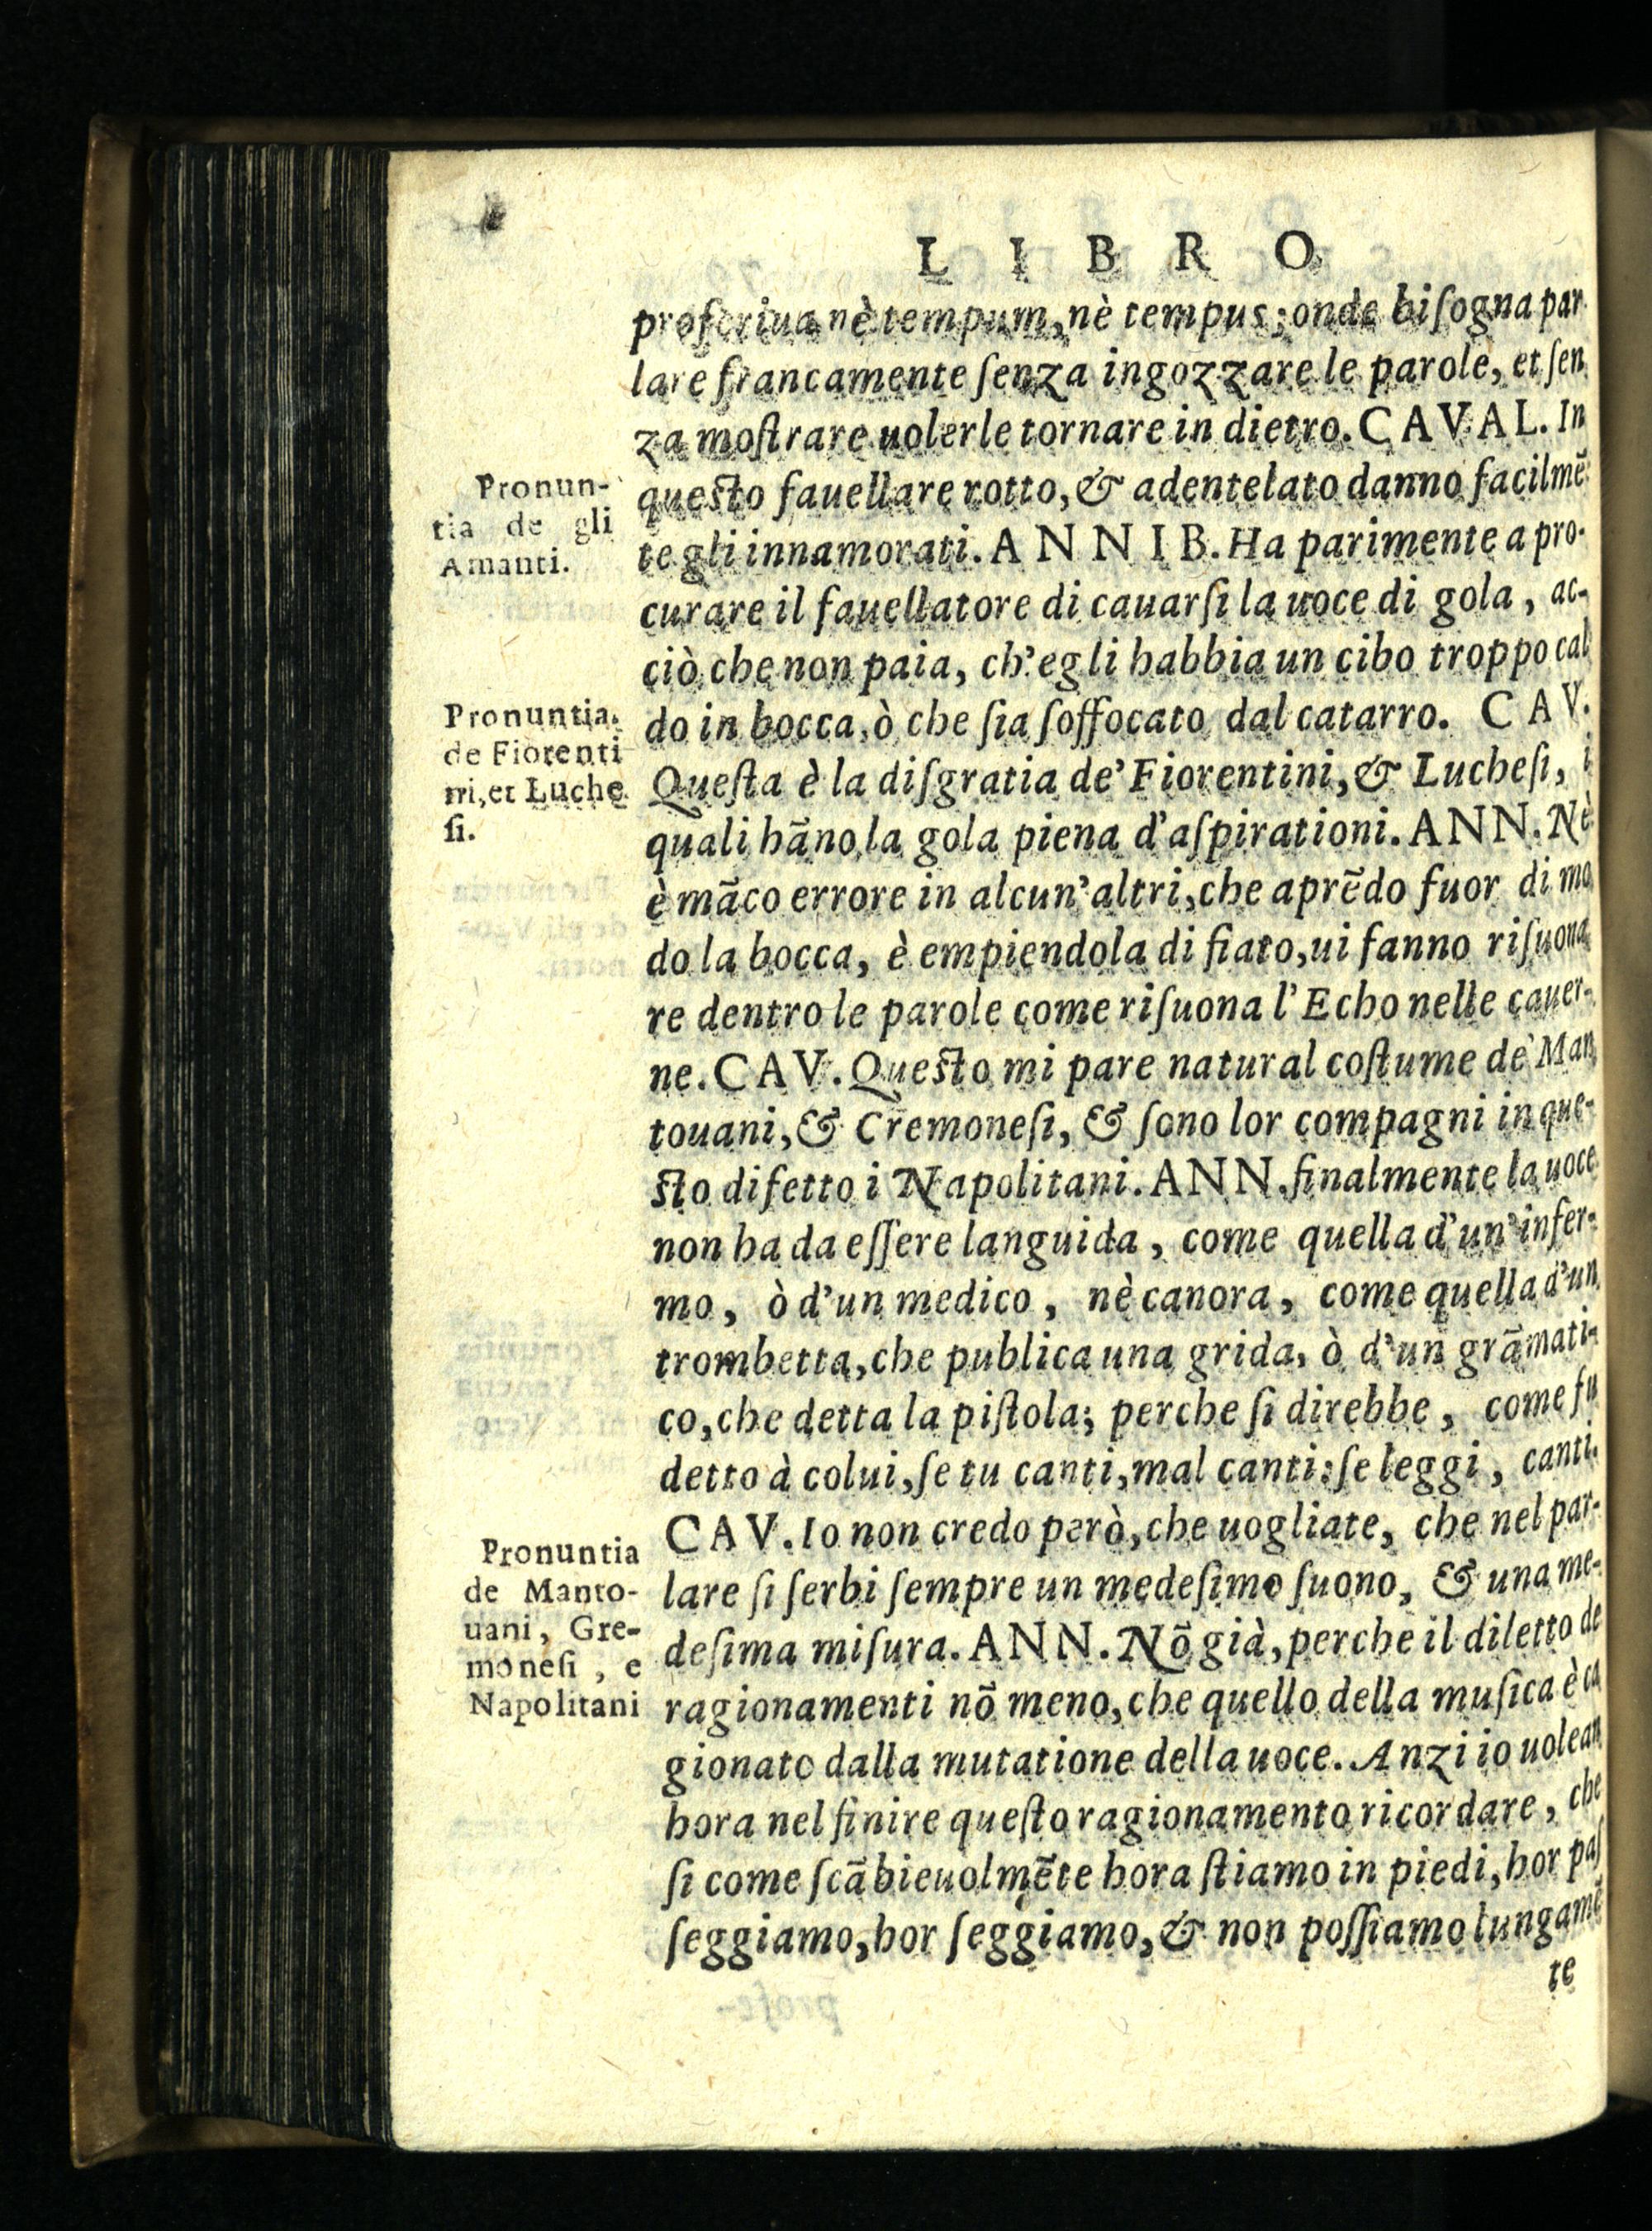 LIBRO
proferiua nè tempum, nè tempus; onde biſogna par
lare francamente ſenza ingozzare le parole, et ſen
za moſtrare uolerle tornare in dietro. CAVAL. In
queſto fauellare rotto, & adentelato danno facilmẽ
te gli innamorati. ANNIB. Ha parimente a pro-
curare il fauellatore di cauarſi la uoce di gola, ac-
ciò che non paia, ch'egli habbia un cibo troppo cal
do in bocca, ò che ſia ſoffocato dal catarro. CAV.
Queſta è la diſgratia de' Fiorentini, & Lucheſi, i
quali hãno la gola piena d'aſpirationi. ANN. Nè
è mãco errore in alcun'altri, che aprẽdo fuor di mo
do la bocca, è empiendola di fiato, ui fanno riſuona
re dentro le parole come riſuona l'Echo nelle cauer-
ne. CAV. Queſto mi pare natural coſtume de' Man
touani, & Cremoneſi, & ſono lor compagni in que-
ſto difetto i Napolitani. ANN. finalmente la uoce
non ha da eſſere languida, come quella d'un'infer-
mo, ò d'un medico, nè canora, come quella d'un
trombetta, che publica una grida, ò d'un grãmati-
co, che detta la piſtola; perche ſi direbbe, come fu
detto à colui, ſe tu canti, mal canti: ſe leggi, canti.
CAV. Io non credo però, che uogliate, che nel par-
lare ſi ſerbi ſempre un medeſimo ſuono, & una me-
deſima miſura. ANN. Nõ già, perche il diletto de
ragionamenti nõ meno, che quello della muſica è ca
gionato dalla mutatione della uoce. Anzi io uolea
hora nel finire queſto ragionamento ricordare, che
ſi come ſcãbieuolmẽte hora ſtiamo in piedi, hor paſ
ſeggiamo, hor ſeggiamo, & non poſſiamo lungamẽ
te
Pronun-
tia de gli
Amanti.
Pronuntia
de Fiorenti
ni, et Luche
ſi.
Pronuntia
de Manto-
uani, Gre-
moneſi, e
Napolitani